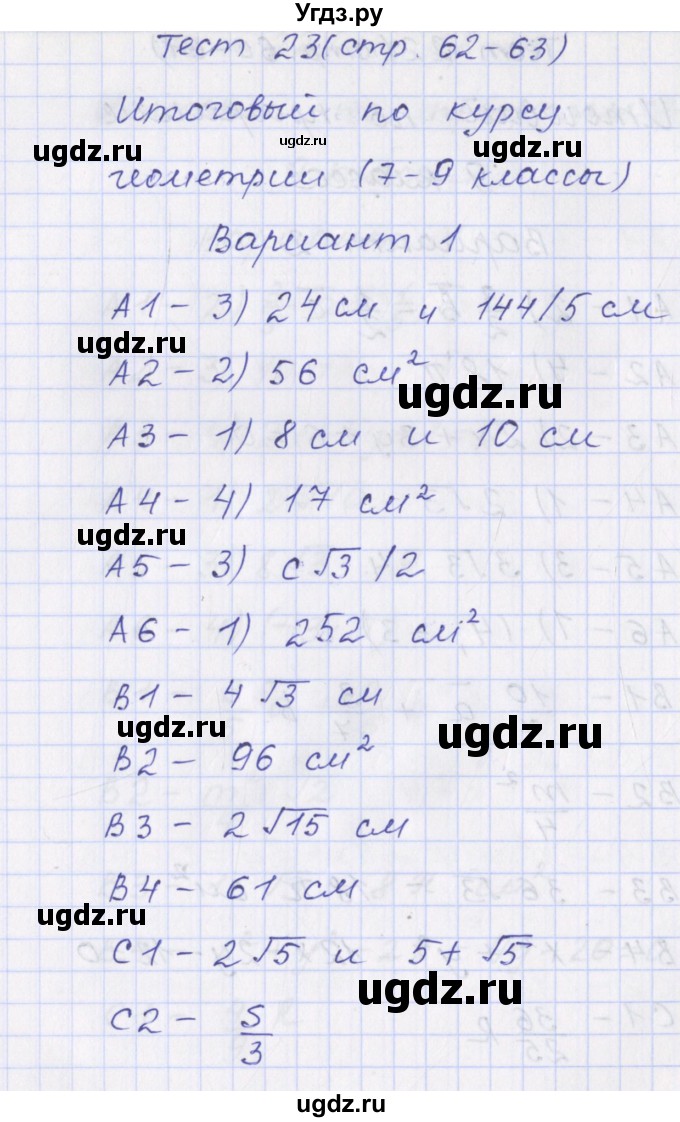 Угдз.ру
Тест 23 (стр. 62-63)
Итоговый по курсу
ugdz.ru
ugdz.ru
геометрии (7-9 классы)
Вариант 1
А1 - 3) 24 см и 144/5 см
ugdz.ru
А2 - 2) 56 см²
ugdz.ru
А3 - 1) 8 см и 10 см
А4 - 4) 17 см²
ugdz.ru
А5 - 3) c√3/2
А6 - 1) 252 см²
В1 - 4√3 см
ugdz.ru
ugdz.ru
В2 - 96 см²
В3 - 2√15 см
В4 - 61 см
ugdz.ru
С1 - 2√5 и 5+√5
ugdz.ru
С2 - S/3
ugdz.ru